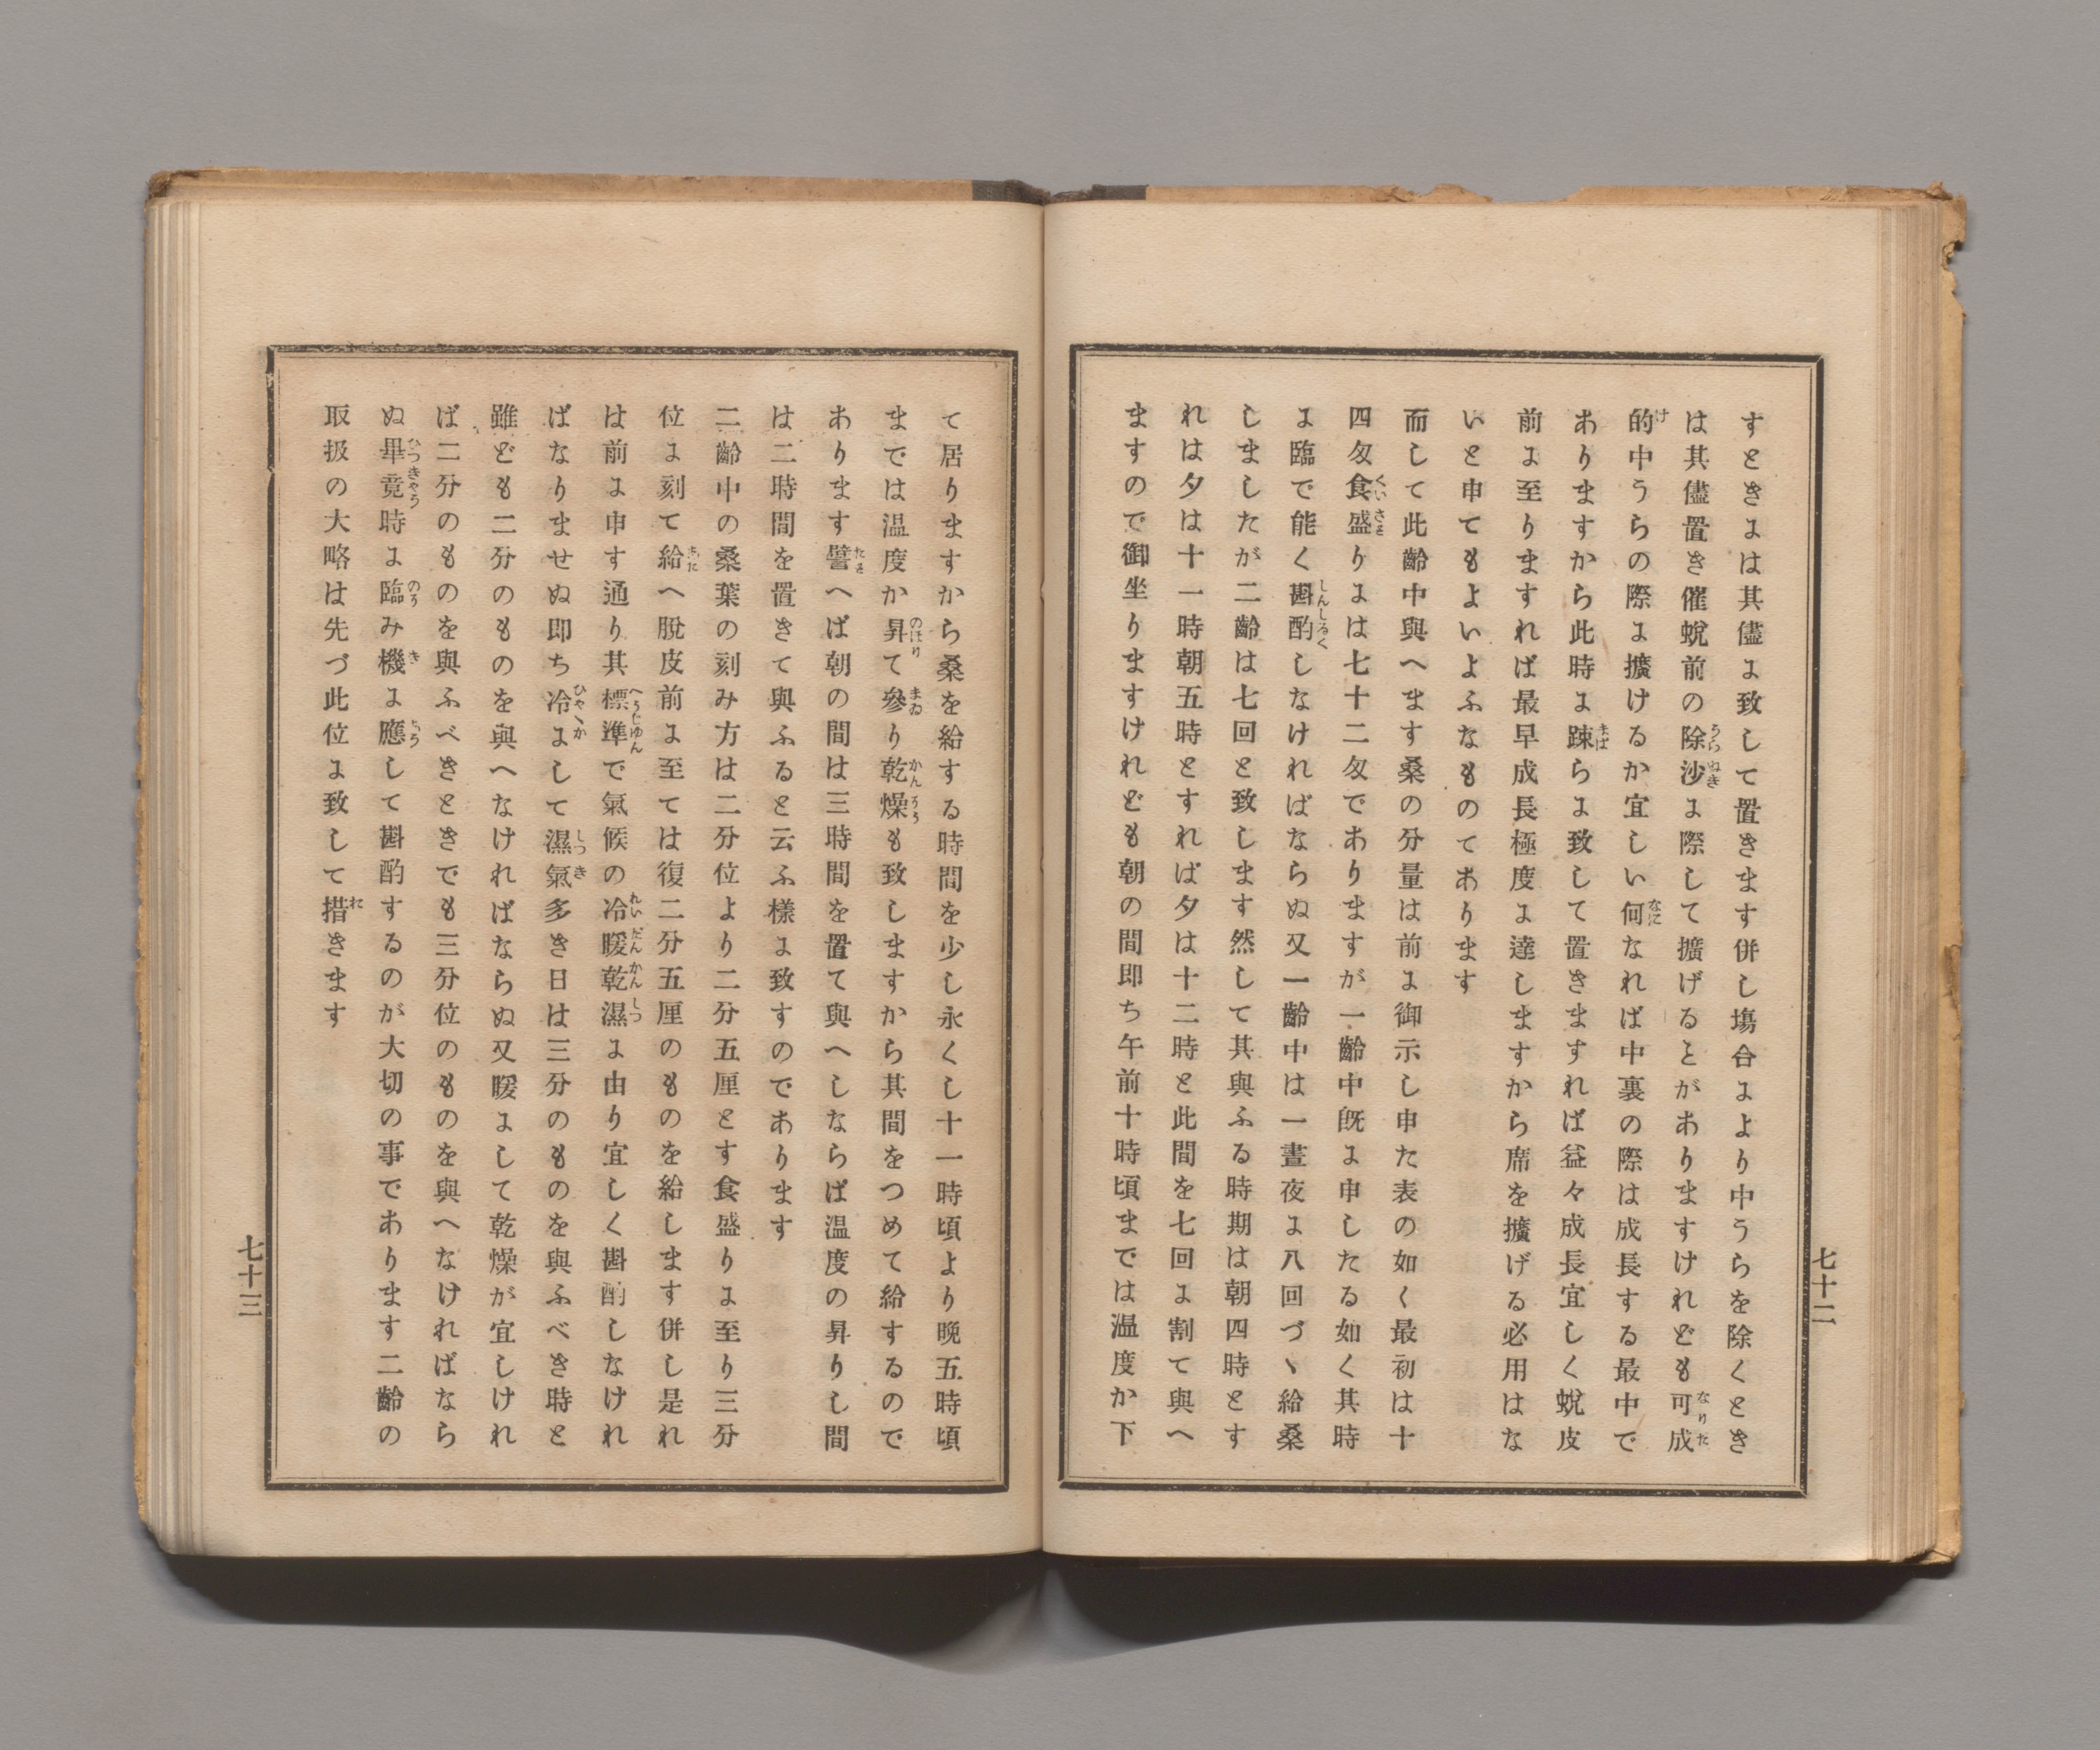 すときは其儘に致して置きます併し塲合により中うらを除くとき
は其儘置き催蛻前の除沙に際して擴げるとがありますけれども可成
的中うらの際に擴けるか宜しい何なれば中裏の際は成長する最中で
ありますから此時に踈らに致して置きますれば益々成長宜しく蛻皮
前に至りますれば最早成長極度に達しますから席を擴げる必用はな
いと申てもよいよふなものてあります
而して此齡中與へます桑の分量は前に御示し申た表の如く最初は十
四匁食盛りには七十二匁でありますが一齡中既に申したる如く其時
に臨で能く斟酌しなければならぬ又一齡中は一晝夜に八回づゝ給桑
しましたが二齡は七回と致します然して其與ふる時期は朝四時とす
れは夕は十一時朝五時とすれば夕は十二時と此間を七回に割て與へ
ますので御坐りますけれども朝の間即ち午前十時頃までは温度か下
七十二
て居りますから桑を給する時間を少し永くし十一時頃より晩五時頃
までは温度か昇て參り乾燥も致しますから其間をつめて給するので
あります譬へば朝の間は三時間を置て與へしならば温度の昇りし間
は二時間を置きて與ふると云ふ樣に致すのであります
二齡中の桑葉の刻み方は二分位より二分五厘とす食盛りに至り三分
位に刻て給へ脱皮前に至ては復二分五厘のものを給します併し是れ
は前に申す通り其標準で氣候の冷暖乾濕に由り宜しく斟酌しなけれ
ばなりませぬ即ち冷にして濕氣多き日は三分のものを與ふべき時と
雖ども二分のものを與へなければならぬ又暖にして乾燥が宜しけれ
ば二分のものを與ふべきときでも三分位のものを與へなければなら
ぬ畢竟時に臨み機に應して斟酌するのが大切の事であります二齡の
取扱の大略は先づ此位に致して措きます
七十三